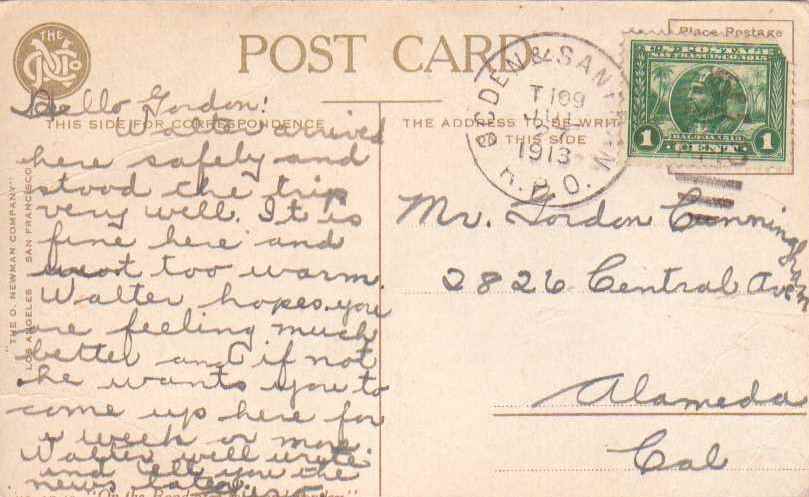 THE
POST CARD
Place Postage
U.S. POSTAGE
SAN FRANCISCO 1915
1 CENT 1
& SAN
T 109
1913
R.P.O.
THIS SIDE FOR CORRESPONDENCE
THE ADDRESS TO BE WRIT
THIS SIDE
"THE O. NEWMAN COMPANY"
LOS ANGELES SAN FRANCISCO
Hello Gordon!
Walter arrived
here safely and
stood the trip
very well. It is
fine here and
not too warm.
Walter hopes you
are feeling much
better and if not
he wants you to
come up here for
a week or more
Walter will write
and tell you the
news later
"On the Road
Mr. Gordon Cunningham
2826 Central Ave
Alameda
Cal